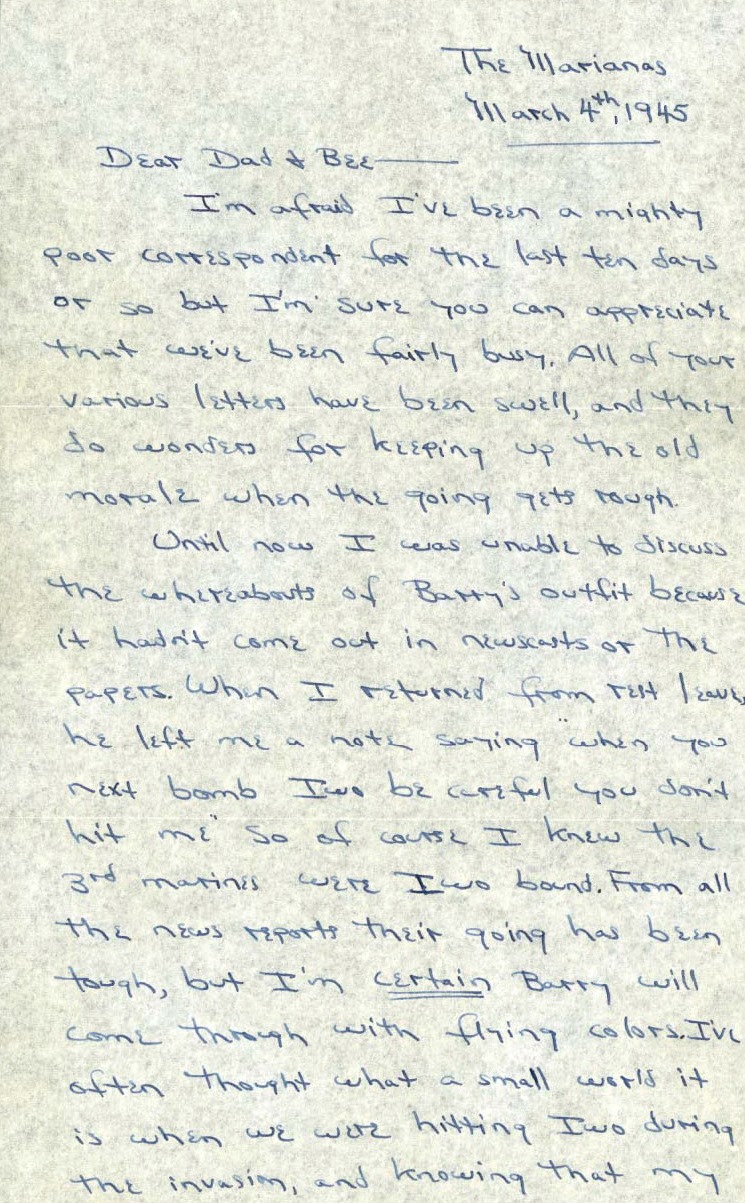 The Marianas
March 4th, 1945
Dear Dad & Bee——
I'm afraid I've been a mighty
poor correspondent for the last ten days
or so but I'm sure you can appreciate
that we've been fairly busy. All of your
various letters have been swell, and they
do wonders for keeping up the old
morale when the going gets rough.
Until now I was unable to discuss
the whereabouts of Barry's outfit because
it hadn't come out in newscasts or the
papers. When I returned from rest leave,
he left me a note saying "when you
next bomb Iwo be careful you don't
hit me" So of course I knew the
3rd marines were Iwo bound. From all
the news reports their going has been
tough, but I'm certain Barry will
come through with flying colors. I've
often thought what a small world it
is when we were hitting Iwo during
the invasion, and knowing that my